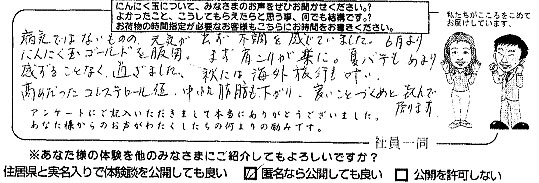 にんにく玉について、みなさまのお声をぜひお聞かせください。
よかったこと、こうしてもらえたらと思う事、何でも結構です?
お荷物の時間指定が必要なお客様もこちらにお時間をお書きください。
私たちがこころをこめて
お届けしています。
病気ではないものの、元気が出ず不調を感じていました。6月より
にんにく玉ゴールドを服用。まず肩こりが楽に。夏バテもあまり
感ずることなく、過ぎました。秋には海外旅行も叶い、
高めだったコレステロール値、中性脂肪も下がり、良いことづくめと喜んで
居ります。
アンケートにご記入いただきまして本当にありがとうございました。
あなた様からのお声がわたくしたちの何よりの励みです。
社員一同
※あなた様の体験を他のみなさまにご紹介してもよろしいですか?
住居県と実名入りで体験談を公開しても良い 匿名なら公開しても良い 公開を許可しない